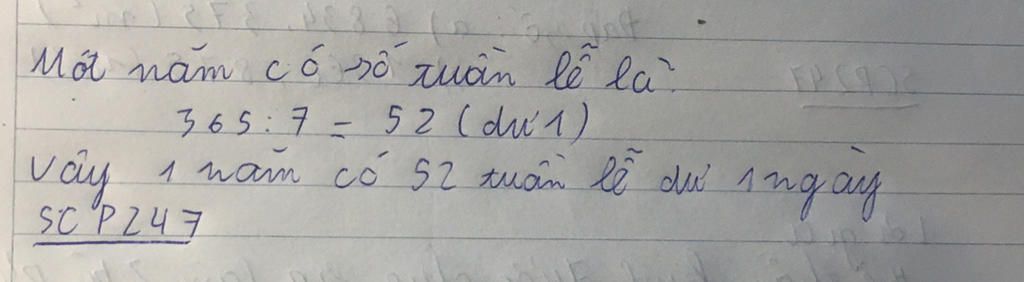 Một năm có số tuần lễ là:
365 : 7 = 52 (dư 1)
Vậy 1 năm có 52 tuần lễ dư 1 ngày
SCP247